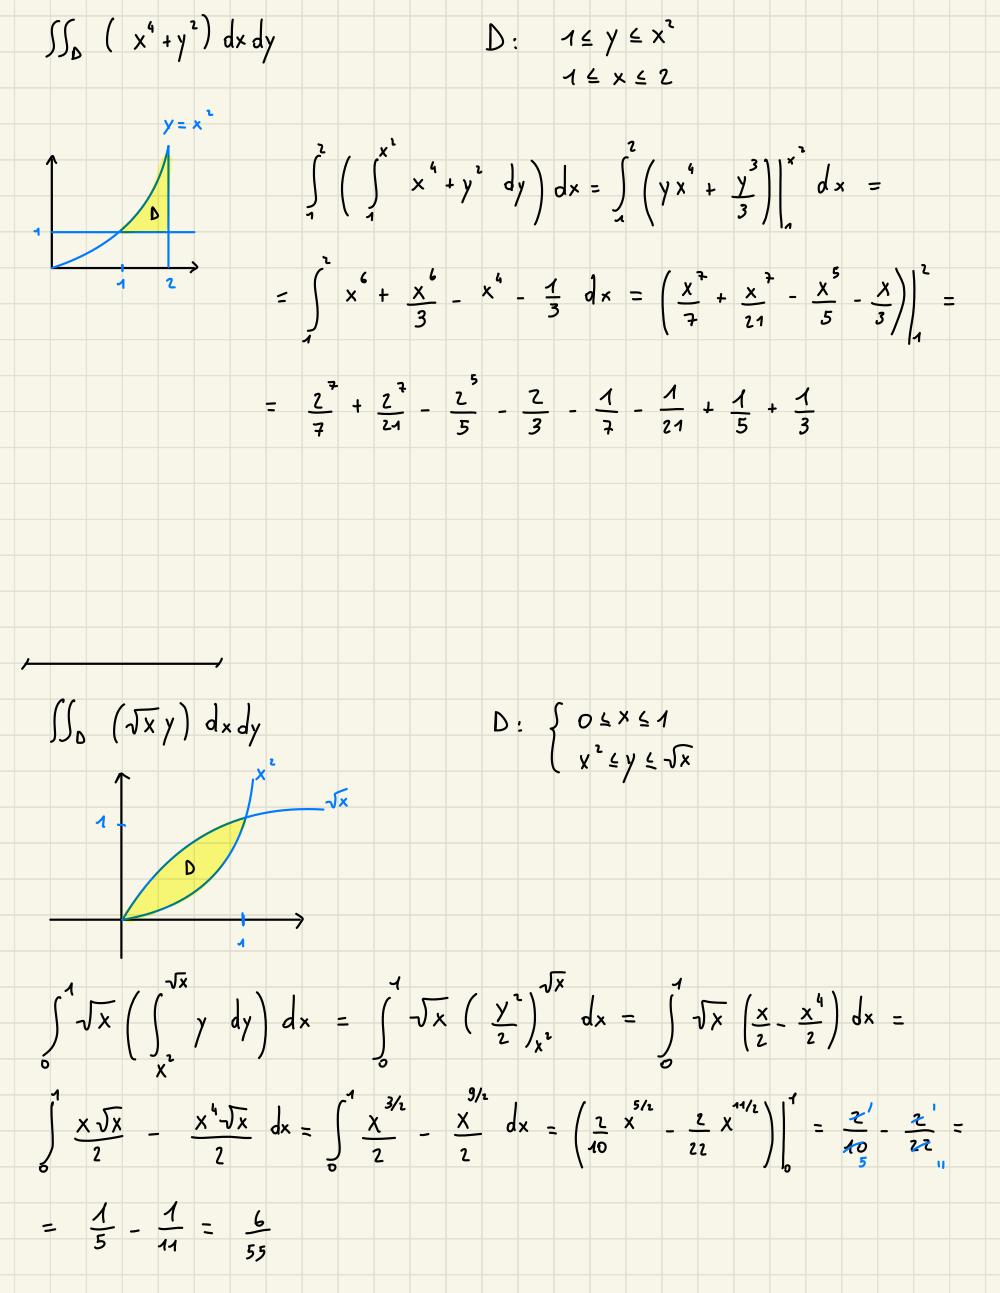 ∬_D (x⁴ + y²) dx dy D: 1 ≤ y ≤ x²
1 ≤ x ≤ 2
y = x²
D
1
1 2
∫₁² ( ∫₁^{x²} x⁴ + y² dy ) dx = ∫₁² ( y x⁴ + y³/3 ) |₁^{x²} dx =
= ∫₁² x⁶ + x⁶/3 - x⁴ - 1/3 dx = ( x⁷/7 + x⁷/21 - x⁵/5 - x/3 ) |₁² =
= 2⁷/7 + 2⁷/21 - 2⁵/5 - 2/3 - 1/7 - 1/21 + 1/5 + 1/3
∬_D (√x y) dx dy D: { 0 ≤ x ≤ 1
x² ≤ y ≤ √x
x²
√x
1
D
1
∫₀¹ √x ( ∫_{x²}^{√x} y dy ) dx = ∫₀¹ √x ( y²/2 )_{x²}^{√x} dx = ∫₀¹ √x ( x/2 - x⁴/2 ) dx =
∫₀¹ x√x/2 - x⁴√x/2 dx = ∫₀¹ x^{3/2}/2 - x^{9/2}/2 dx = ( 2/10 x^{5/2} - 2/22 x^{11/2} ) |₀¹ = 2/10 1 5 - 2/22 1 11 =
= 1/5 - 1/11 = 6/55